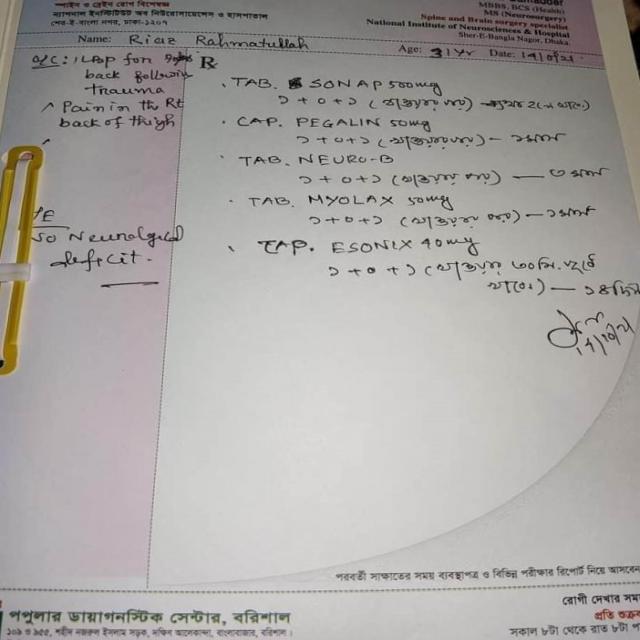 স্পাইন ও ব্রেইন রোগ বিশেষজ্ঞ
ন্যাশনাল ইনস্টিটিউট অব নিউরোসায়েন্সেস ও হাসপাতাল
শের-ই-বাংলা নগর, ঢাকা-১২০৭
MBBS, BCS (Health)
MS (Neurosurgery)
Spine and Brain surgery specialist
National Institute of Neurosciences & Hospital
Sher-E-Bangla Nagor, Dhaka.
Name: Riaz Rahmatullah
Age: 31 Yr Date:
C/C: LBP for
back following
trauma
Pain in the Rt
back of thigh
/E
No Neurological
deficit.
Rx
TAB. SONAP 500mg
১+০+১ (খাওয়ার পর)
CAP. PEGALIN 50mg
১+০+১ (খাওয়ার পর) — ১মাস
TAB. NEURO-B
১+০+১ (খাওয়ার পর) — ৩ মাস
TAB. MYOLAX 50mg
১+০+১ (খাওয়ার পর) — ১মাস
CAP. ESONIX 40mg
১+০+১ (খাওয়ার ৩০ মি. পূর্বে
খাবেন) — ১৪দিন
পরবর্তী সাক্ষাতের সময় ব্যবস্থাপত্র ও বিভিন্ন পরীক্ষার রিপোর্ট নিয়ে আসবেন
পপুলার ডায়াগনস্টিক সেন্টার, বরিশাল
১০৯ ও ৯৫৫, শহীদ নজরুল ইসলাম সড়ক, দক্ষিণ আলেকান্দা, বাংলাবাজার, বরিশাল।
রোগী দেখার সময়
প্রতি শুক্রবার
সকাল ৮টা থেকে রাত ৮টা